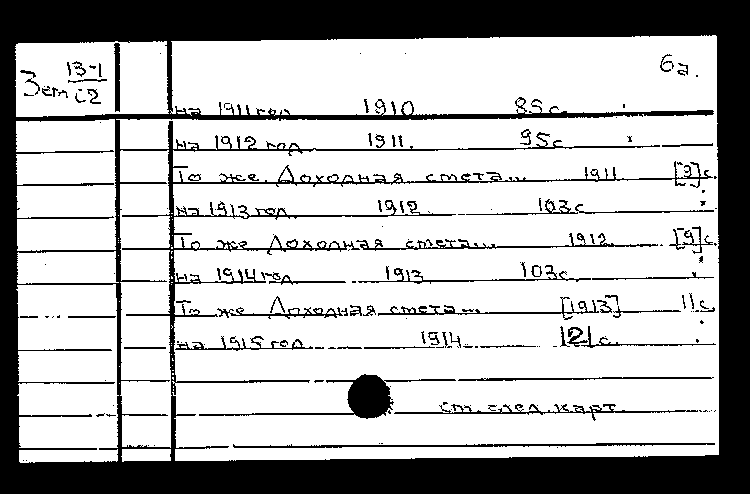 13-1
Зем С2
6а.
на 1911 год 1910 85с.
на 1912 год. 1911. 95с
То же. Доходная смета... 1911 [9]с.
на 1913 год. 1912 103с
То же Доходная смета... 1912 [9]с.
на 1914 год 1913 103с.
То же Доходная смета... [1913] 11с.
на 1915 год 1914 121с.
см. след. карт.